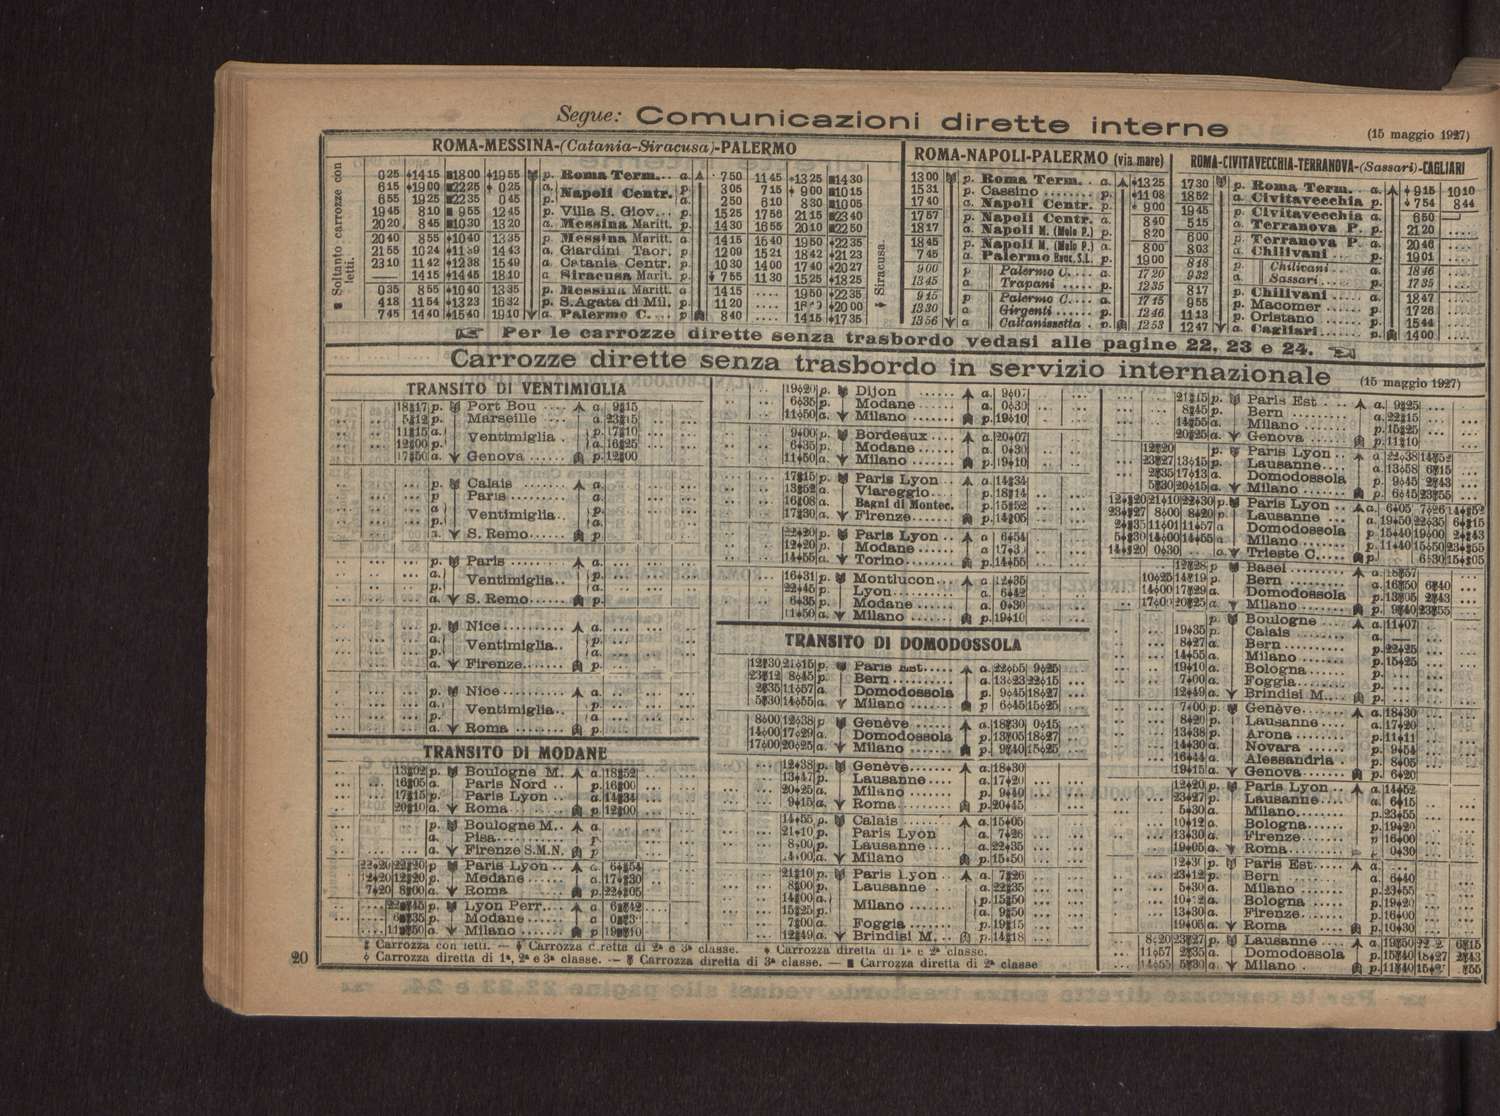 Segue: Comunicazioni dirette interne (15 maggio 1927)
ROMA-MESSINA-(Catania-Siracusa)-PALERMO
Soltanto carrozze con letti.
0 25 14 15 18 00 19 55 p. Roma Term... a. 7 50 11 45 13 25 14 30
6 15 19 00 22 25 0 25 a. Napoli Centr. p. 3 05 7 15 9 00 10 15
6 55 19 25 22 35 0 45 p. a. 2 50 6 10 8 30 10 05
19 45 8 10 9 55 12 45 p. Villa S. Giov... p. 15 25 17 56 21 15 23 40
20 20 8 45 10 30 13 20 a. Messina Maritt. p. 14 30 16 55 20 10 22 50
20 40 8 55 10 40 13 35 p. Messina Maritt. a. 14 15 16 40 19 50 22 35
21 55 10 24 11 59 14 43 a. Giardini Taor. p. 12 09 15 21 18 42 21 23
23 10 11 42 12 38 15 49 a. Catania Centr. p. 10 30 14 00 17 40 20 27
14 15 14 45 18 10 a. Siracusa Marit. p. 7 55 11 30 15 25 18 25
0 35 8 55 10 40 13 35 p. Messina Maritt. a. 14 15 .... 19 50 22 35
4 18 11 54 13 23 16 32 p. S. Agata di Mil. p. 11 20 .... 20 00
7 45 14 40 15 40 19 10 a. Palermo C. ... p. 8 40 .... 14 15 17 35
Siracusa.
ROMA-NAPOLI-PALERMO (via mare)
13 00 p. Roma Term. . a. 13 25
15 31 p. Cassino ....... a. 11 08
17 40 a. Napoli Centr. p. 9 00
17 57 p. Napoli Centr. a. 8 40
18 17 a. Napoli M. (Molo P.) p. 8 20
18 45 p. Napoli M. (Molo P.) a. 8 00
7 45 a. Palermo Banc. S.L. p. 19 00
9 00 p Palermo C.... a. 17 20
13 45 a Trapani ..... p. 12 35
9 15 p Palermo C.... a. 17 15
13 30 a Girgenti ..... p. 12 46
13 56 a Caltanissetta . p. 12 53
ROMA-CIVITAVECCHIA-TERRANOVA-(Sassari)-CAGLIARI
17 30 p. Roma Term... a. 9 15 10 10
18 52 a. Civitavecchia p. 7 54 8 44
19 45 p. Civitavecchia a. 6 50
5 15 a. Terranova P. p. 21 20 ....
6 00 p. Terranova P. a. 20 46
8 03 a. Chilivani.... p. 19 01
8 48 p. Chilivani .... a. 18 46
9 32 a. Sassari.... p. 17 35
8 17 p. Chilivani .... a. 18 47
9 55 p. Macomer .... p. 17 26
11 13 p. Oristano .... p. 15 44
12 47 a. Cagliari..... p. 14 00
Per le carrozze dirette senza trasbordo vedasi alle pagine 22, 23 e 24.
Carrozze dirette senza trasbordo in servizio internazionale (15 maggio 1927)
TRANSITO DI VENTIMIGLIA
18 17 p. Port Bou .... a. 9 15
5 12 p. Marseille .... a. 23 15
11 15 a. Ventimiglia . p. 17 10
12 00 p. a. 16 25
17 50 a. Genova ..... p. 12 00
p. Calais ....... a.
p Paris......... a.
a. Ventimiglia.. p.
p. a.
a. S. Remo...... p.
p. Paris ........ a.
a. Ventimiglia.. p.
p. a.
a. S. Remo...... p.
p. Nice ......... a.
a. Ventimiglia.. p.
p. a.
a. Firenze....... p.
p. Nice.......... a.
a. Ventimiglia.. p.
p. a.
a. Roma ....... p.
TRANSITO DI MODANE
13 02 p. Boulogne M. a. 18 52
16 05 a. Paris Nord .. p. 16 00
17 15 p. Paris Lyon .. a. 14 34
20 10 a. Roma ....... p. 12 00
p. Boulogne M.. a.
a. Pisa.......... p.
a. Firenze S.M.N. p
22 20 22 20 p. Paris Lyon .. a. 6 54
12 20 12 20 p. Modane ...... a. 17 30
7 20 8 00 a. Roma ....... p. 22 05
22 45 p. Lyon Perr.... a. 6 42
6 35 p. Modane ...... a
11 50 a. Milano ...... p. 19 10
19 20 p. Dijon ...... a. 9 07
6 35 p. Modane .... a. 0 30
11 50 a. Milano ..... p. 19 10
9 00 p. Bordeaux .... a. 20 07
6 35 p. Modane .... a. 0 30
11 50 a. Milano ..... p. 19 10
17 15 p. Paris Lyon . a. 14 34
13 52 a. Viareggio.... p. 18 14
16 08 a. Bagni di Montec. p. 15 52
17 30 a. Firenze...... p. 14 05
22 20 p. Paris Lyon .. a 6 54
12 20 p. Modane ..... a
14 55 a. Torino....... p. 14 55
16 31 p. Montlucon... a. 12 35
22 45 p. Lyon......... a. 6 42
6 35 p. Modane ..... a. 0 30
11 50 a. Milano ...... p. 19 10
TRANSITO DI DOMODOSSOLA
12 30 21 15 p. Paris Est.... a. 22 55 9 25
23 12 8 45 p. Bern ......... a. 13 23 22 15
2 35 11 57 a. Domodossola p. 9 45 18 27
5 30 14 55 a. Milano ...... p. 6 45 15 25
8 00 12 38 p Genève ...... a. 18 30 0 15
14 00 17 29 a. Domodossola p. 13 05 18 27
17 00 20 25 a. Milano ...... p. 9 40 15 25
12 38 p. Genève....... a. 18 30
13 47 p. Lausanne .... a. 17 20
20 25 a. Milano ...... p. 9 40
9 15 a. Roma ........ p. 20 45
14 55 p. Calais ....... a. 15 05
21 10 p. Paris Lyon a. 7 26
8 00 p. Lausanne.... a. 22 35
a. Milano ...... p. 15 50
21 10 p. Paris Lyon .. a. 7 26
8 00 p. Lausanne .... a. 22 35
14 00 a. Milano ...... p. 15 50
15 25 p. a. 9 50
7 00 a. Foggia ...... p. 19 15
12 49 a. Brindisi M. .. p. 14 18
21 15 p. Paris Est .... a. 9 25
8 45 p. Bern ........ a. 22 15
14 55 a. Milano ..... p. 15 25
20 25 a. Genova ..... p. 11 10
12 20 p. Paris Lyon .. a. 22 38 14 52
23 27 13 15 p. Lausanne.... a. 13 58 6 15
2 35 17 13 a. Domodossola p. 9 45 2 43
5 30 20 15 a. Milano ...... p. 6 45 23 55
12 20 21 10 22 30 p. Paris Lyon .. a. 6 05 7 26 14 52
23 27 8 00 8 20 p. Lausanne .... a. 19 50 22 35 6 15
2 35 11 01 11 57 a. Domodossola p. 15 40 19 00 2 43
5 30 14 00 14 55 a. Milano ...... p. 11 40 15 50 23 55
14 20 0 30 ... a. Trieste C.... p. 6 30 15 05
12 28 p Basel ........ a. 18 57
10 25 14 19 p. Bern ........ a. 16 50 6 40
14 00 17 29 a. Domodossola p. 13 05 2 43
17 00 20 25 a. Milano ...... p. 9 40 23 55
p. Boulogne .... a. 11 07
19 35 p. Calais ....... a. —
8 27 a. Bern......... p. 22 25
14 55 a. Milano ...... p. 15 25
19 10 a. Bologna...... p.
7 00 a. Foggia....... p.
12 49 a. Brindisi M... p.
7 00 p. Genève...... a. 18 30
8 20 p. Lausanne.... a. 17 20
13 38 p. Arona ....... p. 11 11
14 30 a. Novara ..... p. 9 54
16 44 a. Alessandria . p. 8 05
19 15 a. Genova ...... p. 6 20
12 20 p. Paris Lyon... a. 14 52
23 27 p. Lausanne.... a. 6 15
5 30 a. Milano....... p. 23 55
10 12 a. Bologna...... p. 19 20
13 30 a. Firenze ...... p. 16 00
19 05 a. Roma........ p. 0 30
p. Paris Est..... a.
23 12 p. Bern ........ a. 6 40
5 30 a. Milano ...... p. 23 55
a. Bologna ..... p. 19 20
13 30 a. Firenze...... p. 16 00
19 05 a. Roma ....... p. 10 30
8 20 23 27 p. Lausanne .... a. 19 50 6 15
11 57 2 35 a. Domodossola p. 15 40 18 27 2 43
14 55 5 30 a. Milano ...... p. 11 40
Carrozza con letti. — Carrozza diretta di 2ª e 3ª classe. Carrozza diretta di 1ª e 2ª classe.
Carrozza diretta di 1ª, 2ª e 3ª classe. — Carrozza diretta di 3ª classe. — Carrozza diretta di 2ª classe
20